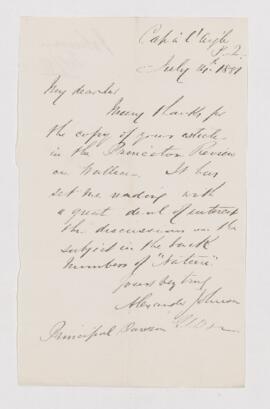 Cap à l'aigle
P. Q.
July 21st 1881
My dear Sir
Many thanks for
the copy of your article
in the Princeton Review
on Wallace. It has
set me reading with
a great deal of interest
the discussions on the
subject in the back
numbers of "Nature".
Yours very truly
Alexander Johnson
Principal Dawson